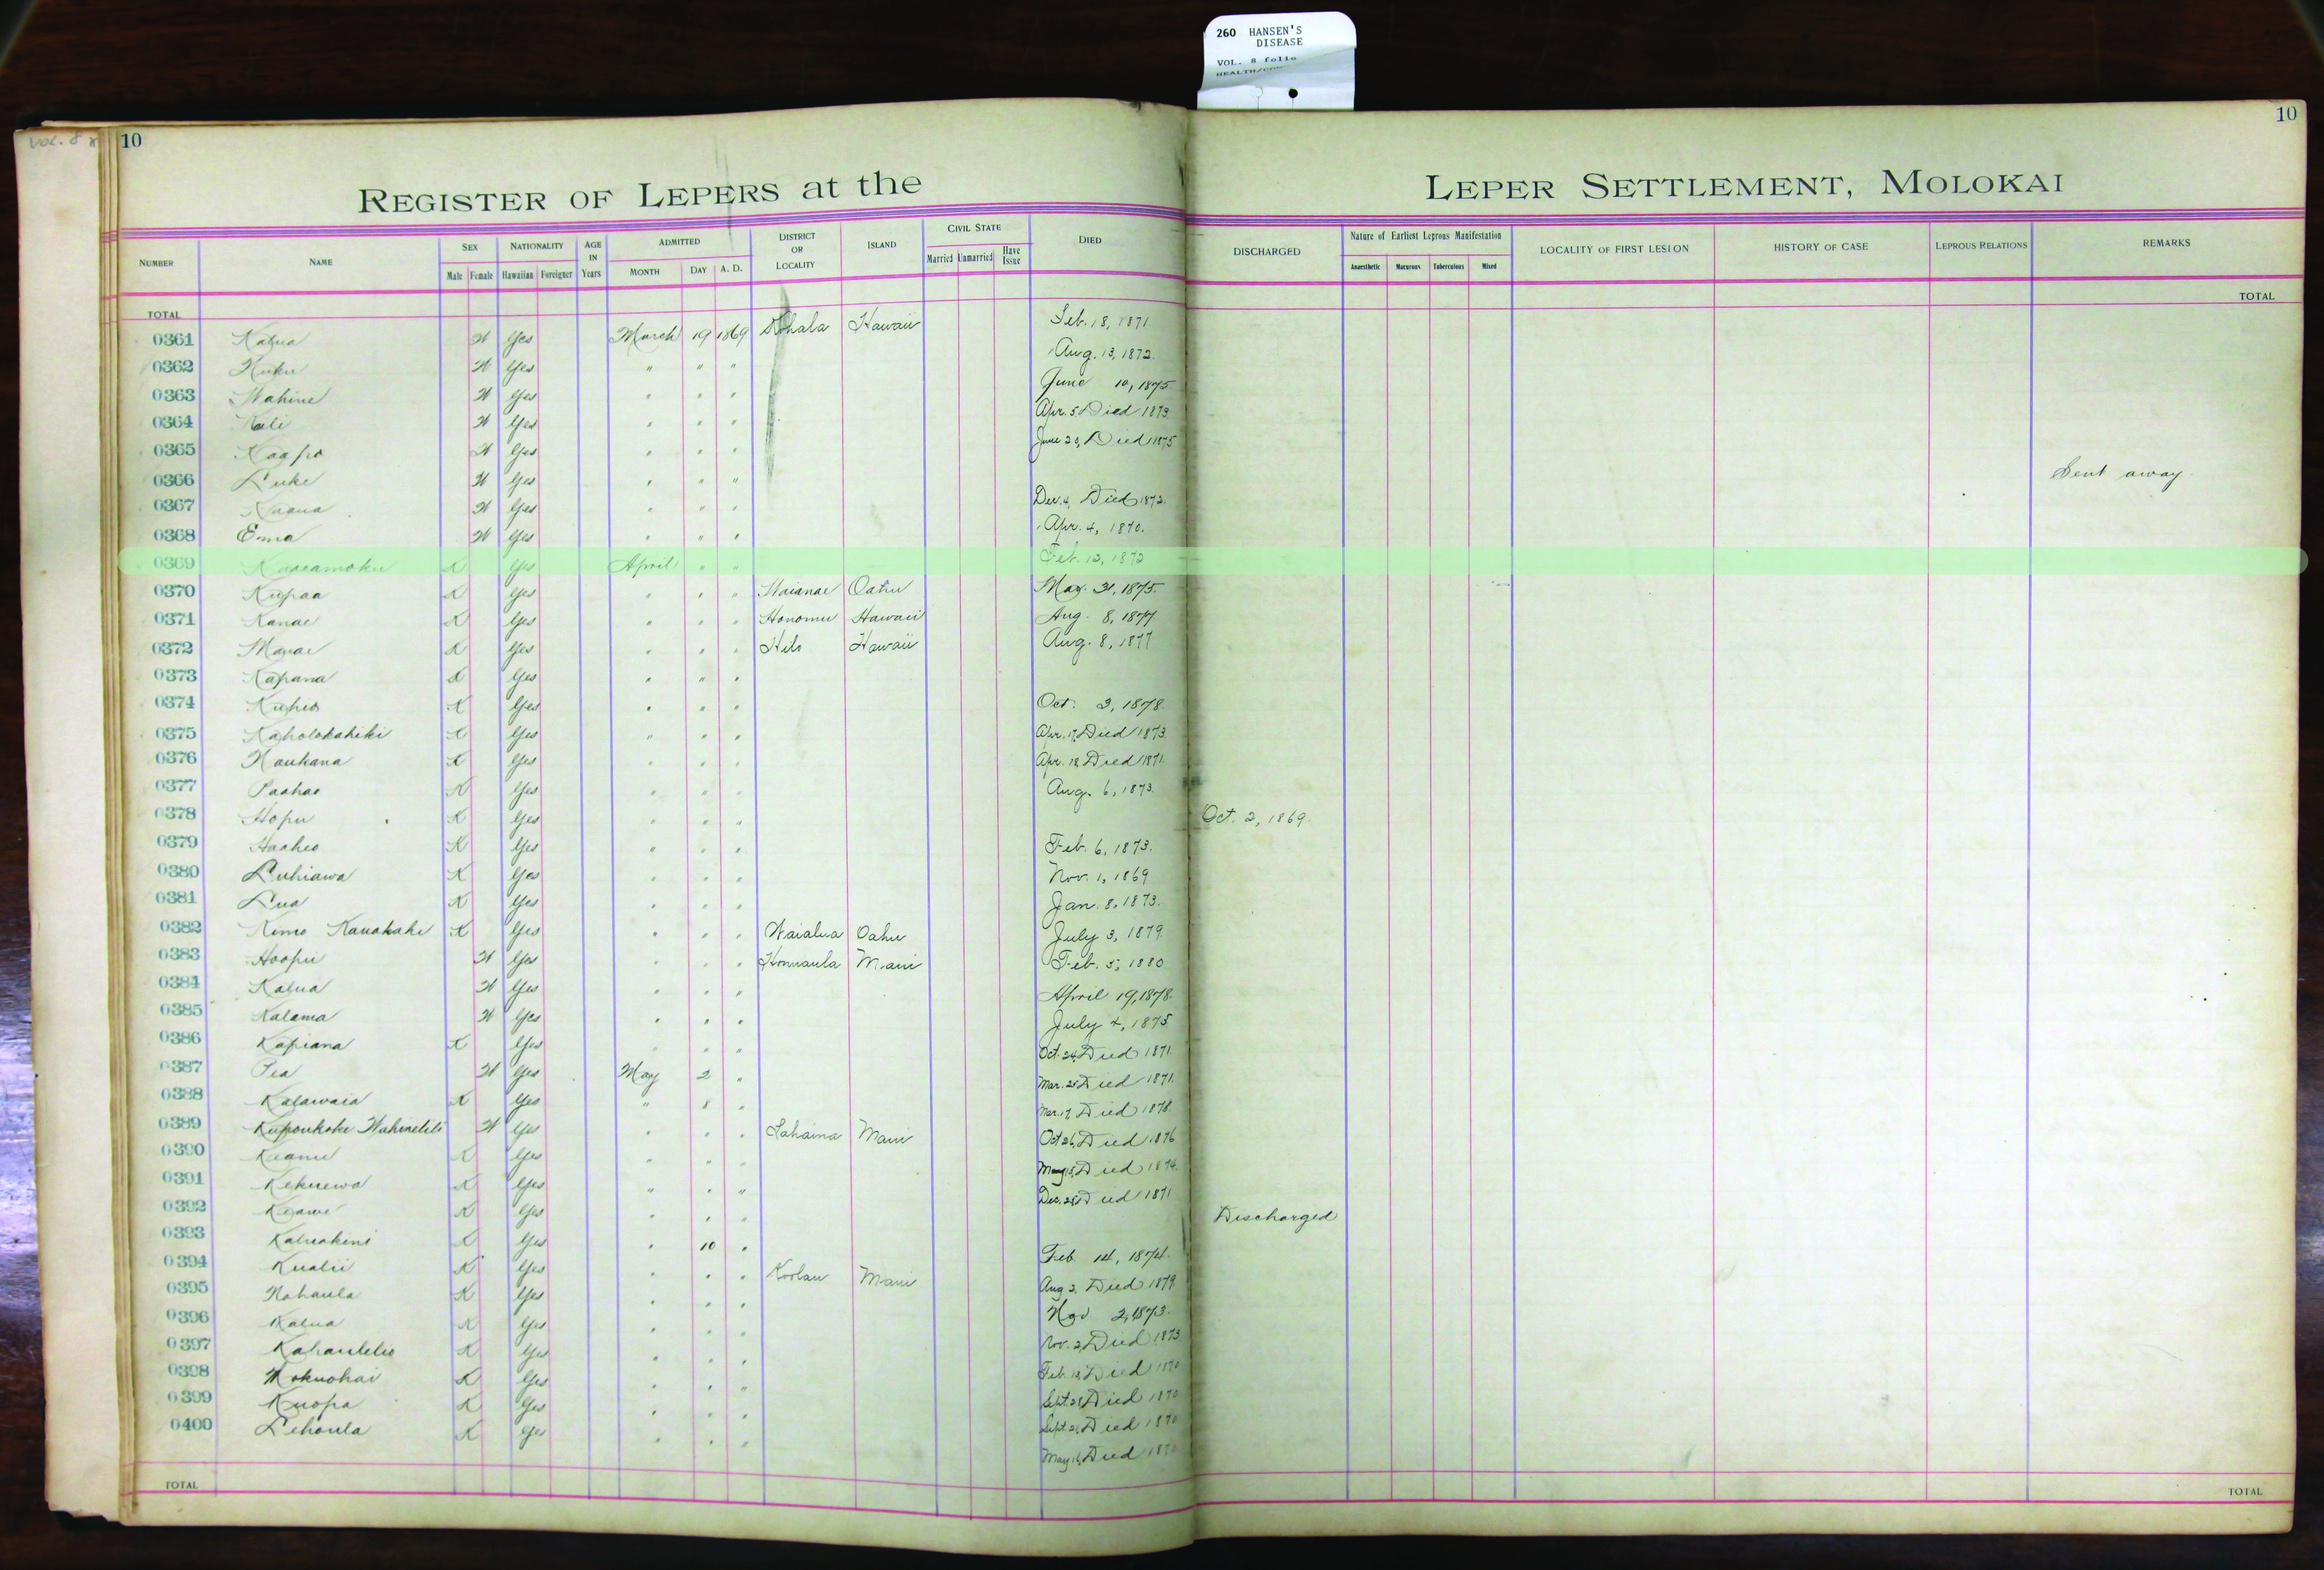 260 HANSEN'S
DISEASE
VOL. 8 folio
VOL. 8
10
10
REGISTER OF LEPERS at the LEPER SETTLEMENT, MOLOKAI
NUMBER NAME SEX Male Female NATIONALITY Hawaiian Foreigner AGE IN Years ADMITTED MONTH DAY A. D. DISTRICT OR LOCALITY ISLAND CIVIL STATE Married Unmarried Have Issue DIED DISCHARGED Nature of Earliest Leprous Manifestation Anaesthetic Macurous Tuberculous Mixed LOCALITY OF FIRST LESION HISTORY OF CASE LEPROUS RELATIONS REMARKS
TOTAL TOTAL
0361 Kalua W Yes March 19 1869 Kohala Hawaii Feb. 18, 1871
0362 Kuku W Yes " " " Aug. 13, 1872.
0363 Wahine W Yes " " " June 10, 1875
0364 Kali W Yes " " " Apr. 5 Died 1873.
0365 Kaapo W Yes " " " June 20, Died 1875
0366 Luke W Yes " " " Sent away
0367 W Yes " " " Dec. 4, Died 1872.
0368 Emma W Yes " " " Apr. 4, 1870.
0369 Kaaeamoku K Yes April " " Feb. 12, 1872
0370 Kupaa K Yes " " " Waianae Oahu May. 31, 1875.
0371 Kanae K Yes " " " Honomu Hawaii Aug. 8, 1877
0372 K Yes " " " Hilo Hawaii Aug. 8, 1877
0373 Kapana K Yes " " "
0374 Kuheo K Yes " " " Oct. 3, 1878.
0375 Kaholokahiki K Yes " " " Apr. 17, Died 1873.
0376 Naukana K Yes " " " Apr. 18 Died 1871.
0377 Paahao K Yes " " " Aug. 6, 1873.
0378 Hopu K Yes " " " Oct. 2, 1869.
0379 Haaheo K Yes " " " Feb. 6, 1873.
0380 Luhiawa K Yes " " " Nov. 1, 1869
0381 Lua K Yes " " " Jan. 8, 1873.
0382 Kimo Kanakahi K Yes " " " Waialua Oahu July 3, 1879.
0383 Hoopii W Yes " " " Honuaula Maui Feb. 5, 1880
0384 Kalua W Yes " " " April 19, 1878.
0385 Kalama W Yes " " " July 4, 1875
0386 Kapiana K Yes " " " Oct. 24, Died 1871.
0387 Pea W Yes May 2 " Mar. 25 Died 1871.
0388 Kalawaia K Yes " 8 " Mar. 17, Died 1878.
0389 W Yes " " " Lahaina Maui Oct 26, Died 1876
0390 Keanu K Yes " " " May 15, Died 1874.
0391 Kekuewa K Yes " " " Dec. 28, Died 1871
0392 Keawe K Yes " " " Discharged
0393 Kaluakini K Yes " 10 " Feb. 14, 1874.
0394 Kualii K Yes " " " Koolau Maui Aug 2, Died 1879.
0395 Nahaula K Yes " " " Nov 2, 1873.
0396 Kalua K Yes " " " Nov. 2, Died 1873
0397 Kahaulelio K Yes " " " Feb. 18, Died 1870
0398 Mokuohai K Yes " " " Sept. 28 Died 1870
0399 Kuopa K Yes " " " Sept. 21, Died 1870
0400 Lehaula K Yes " " " May 16, Died 1870
TOTAL TOTAL